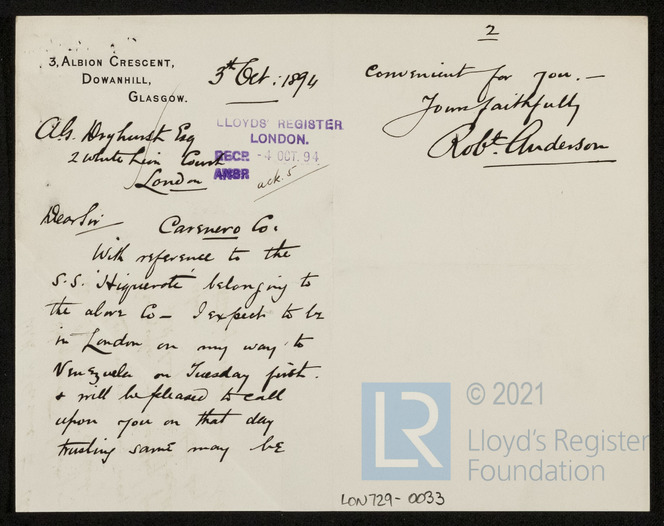 3, Albion Crescent,
Dowanhill,
Glasgow.
3th Oct: 1894
A.G. Dryhurst Esq
2 White Lion Court
London
LLOYDS' REGISTER
LONDON.
RECD -4 OCT. 94
ANSR
ack. 5
Dear Sir
Carenero Co.
With reference to the
S.S. 'Higuerote' belonging to
the above Co – I expect to be
in London on my way to
Venezuela on Tuesday first.
& will be pleased to call
upon you on that day
trusting same may be
2
convenient for you. –
Yours faithfully
Robt. Anderson
LR
© 2021
Lloyd's Register
Foundation
LON729-0033